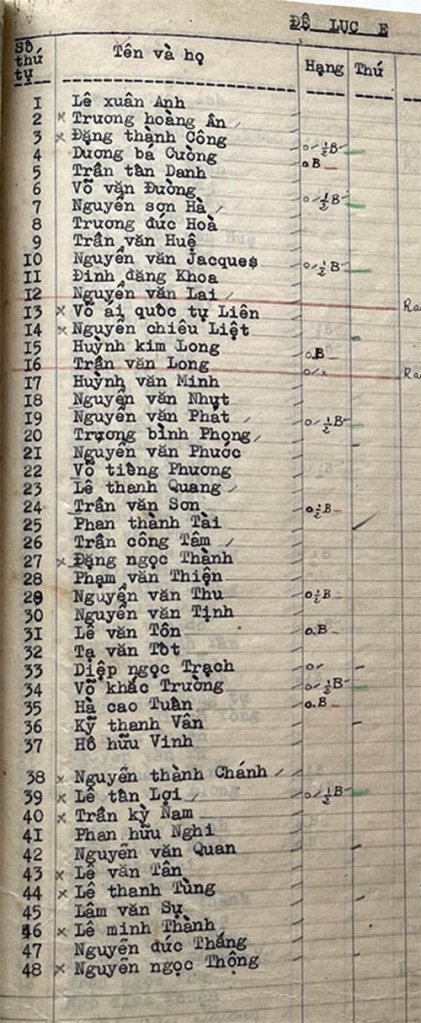 ĐỆ LỤC E
Số thứ tự Tên và họ Hạng Thứ
1 Lê xuân Anh
2 x Trương hoàng Ân
3 x Đặng thành Công o/½B
4 Dương bá Cường o.B
5 Trần tân Danh
6 Võ văn Đường
7 Nguyễn sơn Hà o/½B
8 Trương đức Hoà
9 Trần văn Huệ
10 Nguyễn văn Jacques o/½B
11 Đinh đăng Khoa
12 Nguyễn văn Lai
13 x Võ ái quốc tự Liên Ra
14 x Nguyễn chiêu Liệt
15 Huỳnh kim Long o.B
16 Trần văn Long
17 Huỳnh văn Minh Ra
18 Nguyễn văn Nhựt
19 Nguyễn văn Phát o/½B
20 Trương bình Phong
21 Nguyễn văn Phước
22 Võ tiếng Phương
23 Lê thanh Quang
24 Trần văn Sơn o½B
25 Phan thành Tài
26 Trần công Tâm
27 x Đặng ngọc Thành
28 Phạm văn Thiện
29 Nguyễn văn Thu o½B
30 Nguyễn văn Tịnh
31 Lê văn Tôn o.B
32 Tạ văn Tốt
33 Diệp ngọc Trạch o/
34 Võ khắc Trường o/½B
35 Hà cao Tuân o.B
36 Kỹ thanh Vân
37 Hồ hữu Vinh
38 x Nguyễn thành Chánh
39 x Lê tân Lợi o/½B
40 x Trần kỳ Nam
41 Phan hữu Nghi
42 Nguyễn văn Quan
43 x Lê văn Tân
44 x Lê thanh Tùng
45 Lâm văn Sự
46 x Lê minh Thành
47 Nguyễn đức Thắng
48 x Nguyễn ngọc Thộng